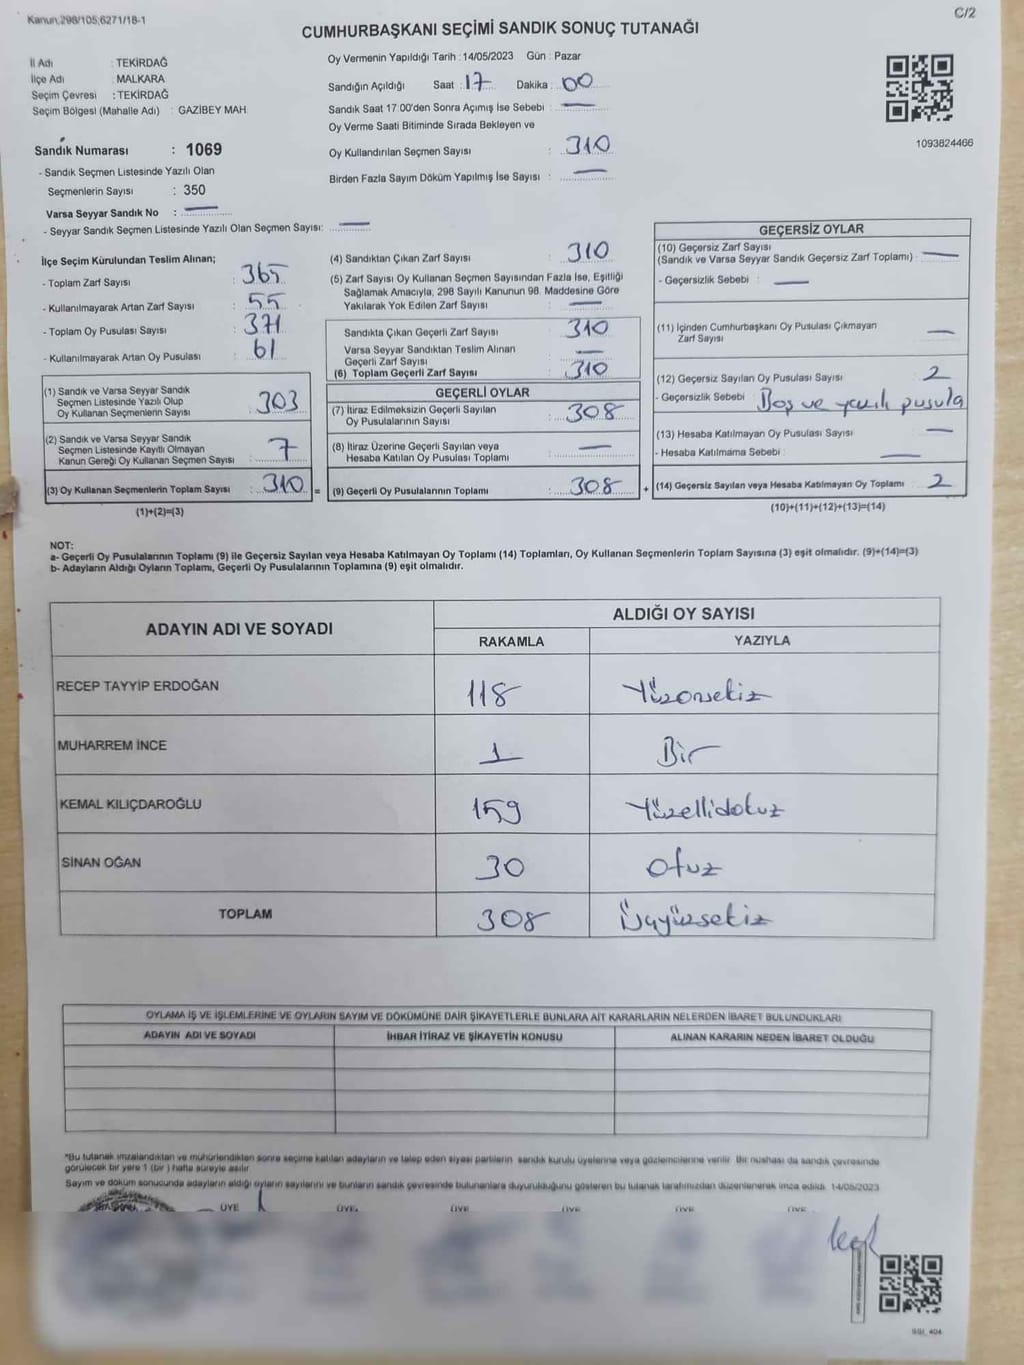 Kanun,298/105;6271/18-1
C/2
CUMHURBAŞKANI SEÇİMİ SANDIK SONUÇ TUTANAĞI
İl Adı : TEKİRDAĞ
İlçe Adı : MALKARA
Seçim Çevresi : TEKİRDAĞ
Seçim Bölgesi (Mahalle Adı) : GAZİBEY MAH.
Sandık Numarası : 1069
- Sandık Seçmen Listesinde Yazılı Olan
Seçmenlerin Sayısı : 350
Varsa Seyyar Sandık No : —
- Seyyar Sandık Seçmen Listesinde Yazılı Olan Seçmen Sayısı: —
Oy Vermenin Yapıldığı Tarih : 14/05/2023 Gün : Pazar
Sandığın Açıldığı Saat : 17 Dakika : 00
Sandık Saat 17.00'den Sonra Açımış İse Sebebi : —
Oy Verme Saati Bitiminde Sırada Bekleyen ve
Oy Kullandırılan Seçmen Sayısı : 310
Birden Fazla Sayım Döküm Yapılmış İse Sayısı : —
1093824466
İlçe Seçim Kurulundan Teslim Alınan;
- Toplam Zarf Sayısı : 365
- Kullanılmayarak Artan Zarf Sayısı : 55
- Toplam Oy Pusulası Sayısı : 371
- Kullanılmayarak Artan Oy Pusulası : 61
(1) Sandık ve Varsa Seyyar Sandık
Seçmen Listesinde Yazılı Olup
Oy Kullanan Seçmenlerin Sayısı : 303
(2) Sandık ve Varsa Seyyar Sandık
Seçmen Listesinde Kayıtlı Olmayan
Kanun Gereği Oy Kullanan Seçmen Sayısı : 7
(3) Oy Kullanan Seçmenlerin Toplam Sayısı : 310 =
(1)+(2)=(3)
(4) Sandıktan Çıkan Zarf Sayısı : 310
(5) Zarf Sayısı Oy Kullanan Seçmen Sayısından Fazla İse, Eşitliği
Sağlamak Amacıyla, 298 Sayılı Kanunun 98. Maddesine Göre
Yakılarak Yok Edilen Zarf Sayısı : —
Sandıkta Çıkan Geçerli Zarf Sayısı : 310
Varsa Seyyar Sandıktan Teslim Alınan
Geçerli Zarf Sayısı : —
(6) Toplam Geçerli Zarf Sayısı : 310
GEÇERLİ OYLAR
(7) İtiraz Edilmeksizin Geçerli Sayılan
Oy Pusulalarının Sayısı : 308
(8) İtiraz Üzerine Geçerli Sayılan veya
Hesaba Katılan Oy Pusulası Toplamı : —
(9) Geçerli Oy Pusulalarının Toplamı : 308 +
GEÇERSİZ OYLAR
(10) Geçersiz Zarf Sayısı
(Sandık ve Varsa Seyyar Sandık Geçersiz Zarf Toplamı) : —
- Geçersizlik Sebebi : —
(11) İçinden Cumhurbaşkanı Oy Pusulası Çıkmayan
Zarf Sayısı —
(12) Geçersiz Sayılan Oy Pusulası Sayısı : 2
- Geçersizlik Sebebi : Boş ve yazılı pusula
(13) Hesaba Katılmayan Oy Pusulası Sayısı : —
- Hesaba Katılmama Sebebi : —
(14) Geçersiz Sayılan veya Hesaba Katılmayan Oy Toplamı : 2
(10)+(11)+(12)+(13)=(14)
NOT:
a- Geçerli Oy Pusulalarının Toplamı (9) ile Geçersiz Sayılan veya Hesaba Katılmayan Oy Toplamı (14) Toplamları, Oy Kullanan Seçmenlerin Toplam Sayısına (3) eşit olmalıdır. (9)+(14)=(3)
b- Adayların Aldığı Oyların Toplamı, Geçerli Oy Pusulalarının Toplamına (9) eşit olmalıdır.
ADAYIN ADI VE SOYADI
ALDIĞI OY SAYISI
RAKAMLA YAZIYLA
RECEP TAYYİP ERDOĞAN 118 Yüzonsekiz
MUHARREM İNCE 1 Bir
KEMAL KILIÇDAROĞLU 159 Yüzellidokuz
SİNAN OĞAN 30 Otuz
TOPLAM 308 Üçyüzsekiz
OYLAMA İŞ VE İŞLEMLERİNE VE OYLARIN SAYIM VE DÖKÜMÜNE DAİR ŞİKAYETLERLE BUNLARA AİT KARARLARIN NELERDEN İBARET BULUNDUKLARI
ADAYIN ADI VE SOYADI İHBAR İTİRAZ VE ŞİKAYETİN KONUSU ALINAN KARARIN NEDEN İBARET OLDUĞU
*Bu tutanak imzalandıktan ve mühürlendikten sonra seçime katılan adayların ve talep eden siyasi partilerin sandık kurulu üyelerine veya gözlemcilerine verilir. Bir nüshası da sandık çevresinde
görülecek bir yere 1 (bir) hafta süreyle asılır.
Sayım ve döküm sonucunda adayların aldığı oyların sayılarını ve bunların sandık çevresinde bulunanlara duyurulduğunu gösteren bu tutanak tarafımızdan düzenlenerek imza edildi. 14/05/2023
ÜYE ÜYE ÜYE ÜYE ÜYE ÜYE